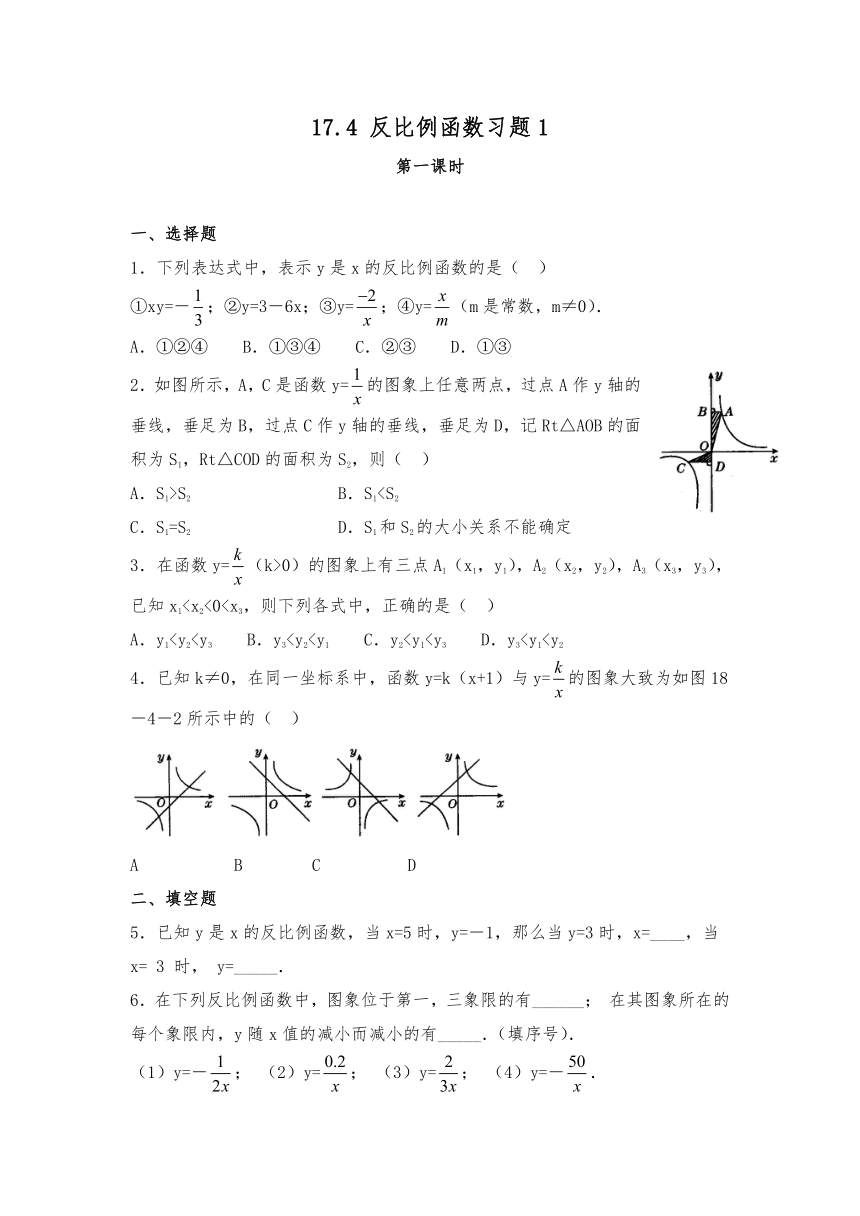 17.4 反比例函数习题1
第一课时
一、选择题
1．下列表达式中，表示y是x的反比例函数的是（ ）
①xy=－1/3；②y=3－6x；③y=−2/x；④y=x/m（m是常数，m≠0）．
A．①②④ B．①③④ C．②③ D．①③
2．如图所示，A，C是函数y=1/x的图象上任意两点，过点A作y轴的
垂线，垂足为B，过点C作y轴的垂线，垂足为D，记Rt△AOB的面
积为S₁，Rt△COD的面积为S₂，则（ ）
A．S₁>S₂ B．S₁<S₂
C．S₁=S₂ D．S₁和S₂的大小关系不能确定
y
B A
O
x
C D
3．在函数y=k/x（k>0）的图象上有三点A₁（x₁，y₁），A₂（x₂，y₂），A₃（x₃，y₃），
已知x₁<x₂<0<x₃，则下列各式中，正确的是（ ）
A．y₁<y₂<y₃ B．y₃<y₂<y₁ C．y₂<y₁<y₃ D．y₃<y₁<y₂
4．已知k≠0，在同一坐标系中，函数y=k（x+1）与y=k/x的图象大致为如图18
－4－2所示中的（ ）
y y y y
O x O x O x O x
A B C D
二、填空题
5．已知y是x的反比例函数，当x=5时，y=－1，那么当y=3时，x=____，当
x= 3 时， y=_____．
6．在下列反比例函数中，图象位于第一，三象限的有______； 在其图象所在的
每个象限内，y随x值的减小而减小的有_____．（填序号）．
（1）y=－1/2x； （2）y=0.2/x； （3）y=2/3x； （4）y=－50/x．